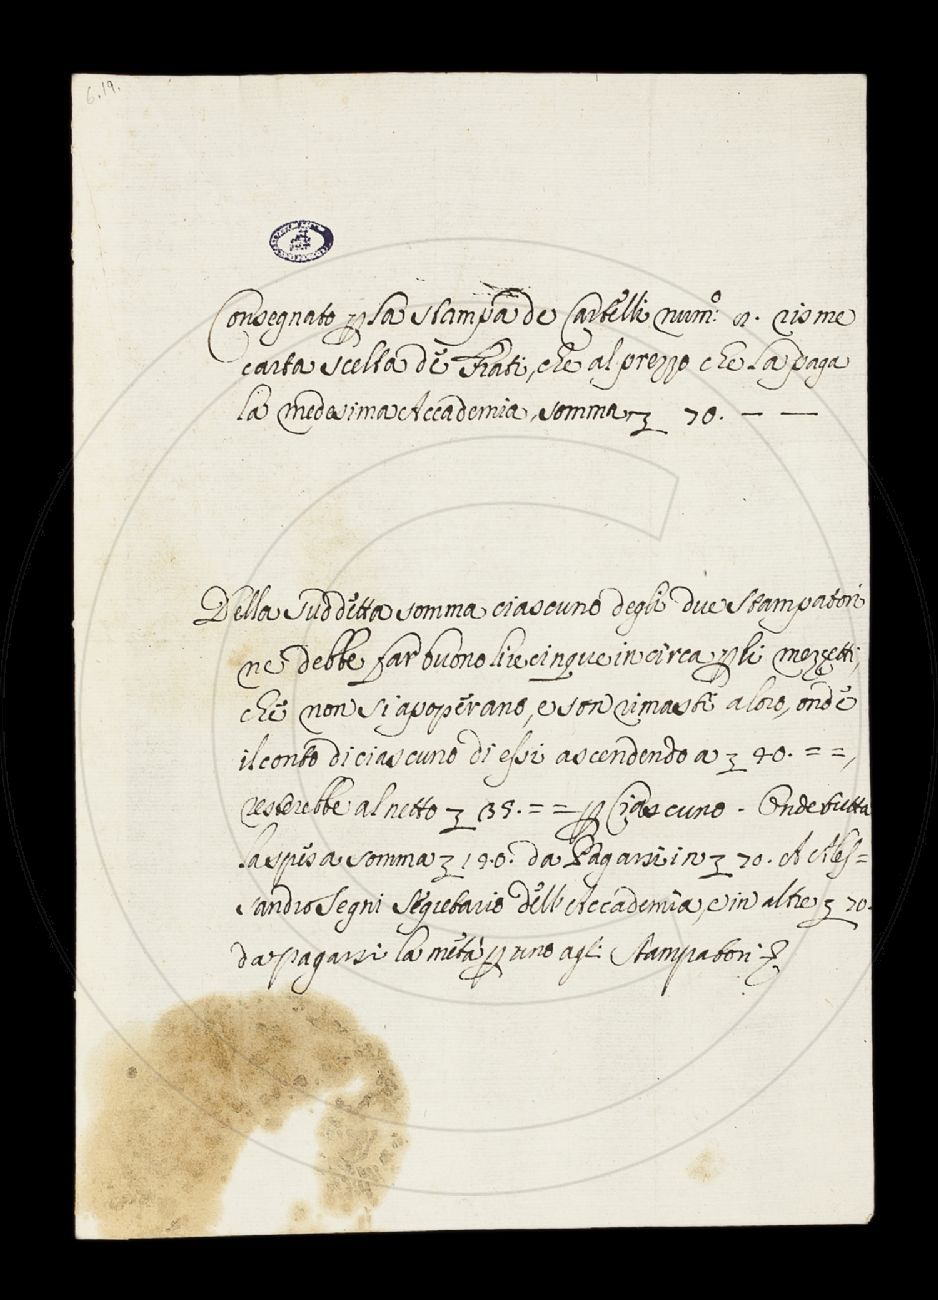 6.19.
Consegnato p la stampa de Cartelli num:o risme
carta scelta de Frati, che al prezzo che la paga
la medesima Accademia, somma 70. — —
Della suddetta somma ciascuno degli due stampatori
ne debbe far buono lire cinque in circa p li mezzetti,
che non si apoperano, e son rimasti a loro, onde
il conto di ciascuno di essi ascendendo a 40. = =,
resterebbe al netto 35. = = p Ciascuno - Onde tutta
la spesa somma 140. da Pagarsi in 70. A Ales=
sandro Segni Segretario dell Accademia, e in altre 70.
da pagarsi la metà p uno agli Stampatori